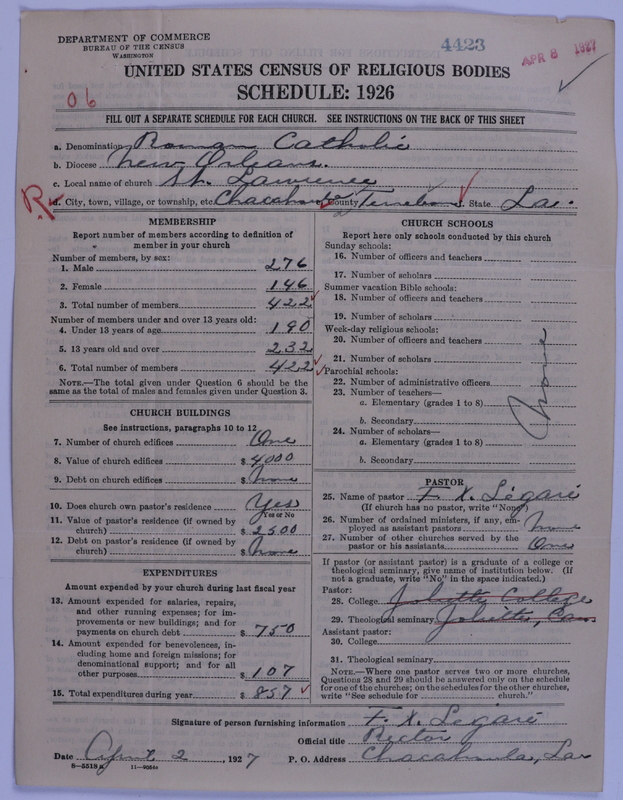 DEPARTMENT OF COMMERCE
BUREAU OF THE CENSUS
WASHINGTON
4423
APR 8 1927
UNITED STATES CENSUS OF RELIGIOUS BODIES
SCHEDULE: 1926
06
FILL OUT A SEPARATE SCHEDULE FOR EACH CHURCH. SEE INSTRUCTIONS ON THE BACK OF THIS SHEET
a. Denomination Roman Catholic
b. Diocese New Orleans.
c. Local name of church St. Lawrence
R
d. City, town, village, or township, etc. Chacahoula County Terrebonne State La.
MEMBERSHIP
Report number of members according to definition of
member in your church
Number of members, by sex:
1. Male 276
2. Female 146
3. Total number of members 422
Number of members under and over 13 years old:
4. Under 13 years of age 190
5. 13 years old and over 232
6. Total number of members 422
NOTE.—The total given under Question 6 should be the
same as the total of males and females given under Question 3.
CHURCH BUILDINGS
See instructions, paragraphs 10 to 12
7. Number of church edifices One
8. Value of church edifices $ 4000
9. Debt on church edifices $ None
10. Does church own pastor's residence Yes
Yes or No
11. Value of pastor's residence (if owned by
church) $ 2500
12. Debt on pastor's residence (if owned by
church) $ None
EXPENDITURES
Amount expended by your church during last fiscal year
13. Amount expended for salaries, repairs,
and other running expenses; for im-
provements or new buildings; and for
payments on church debt $ 750
14. Amount expended for benevolences, in-
cluding home and foreign missions; for
denominational support; and for all
other purposes $ 107
15. Total expenditures during year $ 857
CHURCH SCHOOLS
Report here only schools conducted by this church
Sunday schools:
16. Number of officers and teachers
17. Number of scholars
Summer vacation Bible schools:
18. Number of officers and teachers
19. Number of scholars
Week-day religious schools:
20. Number of officers and teachers
21. Number of scholars
Parochial schools:
22. Number of administrative officers
23. Number of teachers—
a. Elementary (grades 1 to 8)
b. Secondary
24. Number of scholars—
a. Elementary (grades 1 to 8)
b. Secondary
None
PASTOR
25. Name of pastor F. X. Légaré
(If church has no pastor, write "None")
26. Number of ordained ministers, if any, em-
ployed as assistant pastors None
27. Number of other churches served by the
pastor or his assistants One
If pastor (or assistant pastor) is a graduate of a college or
theological seminary, give name of institution below. (If
not a graduate, write "No" in the space indicated.)
Pastor:
28. College Joliette College
29. Theological seminary Joliette, Can
Assistant pastor:
30. College
31. Theological seminary
NOTE.—Where one pastor serves two or more churches,
Questions 28 and 29 should be answered only on the schedule
for one of the churches; on the schedules for the other churches,
write "See schedule for church."
Signature of person furnishing information F. X. Légaré
Official title Rector
Date April 2, 1927 P. O. Address Chacahoula, La
8—5518a 11—9056a